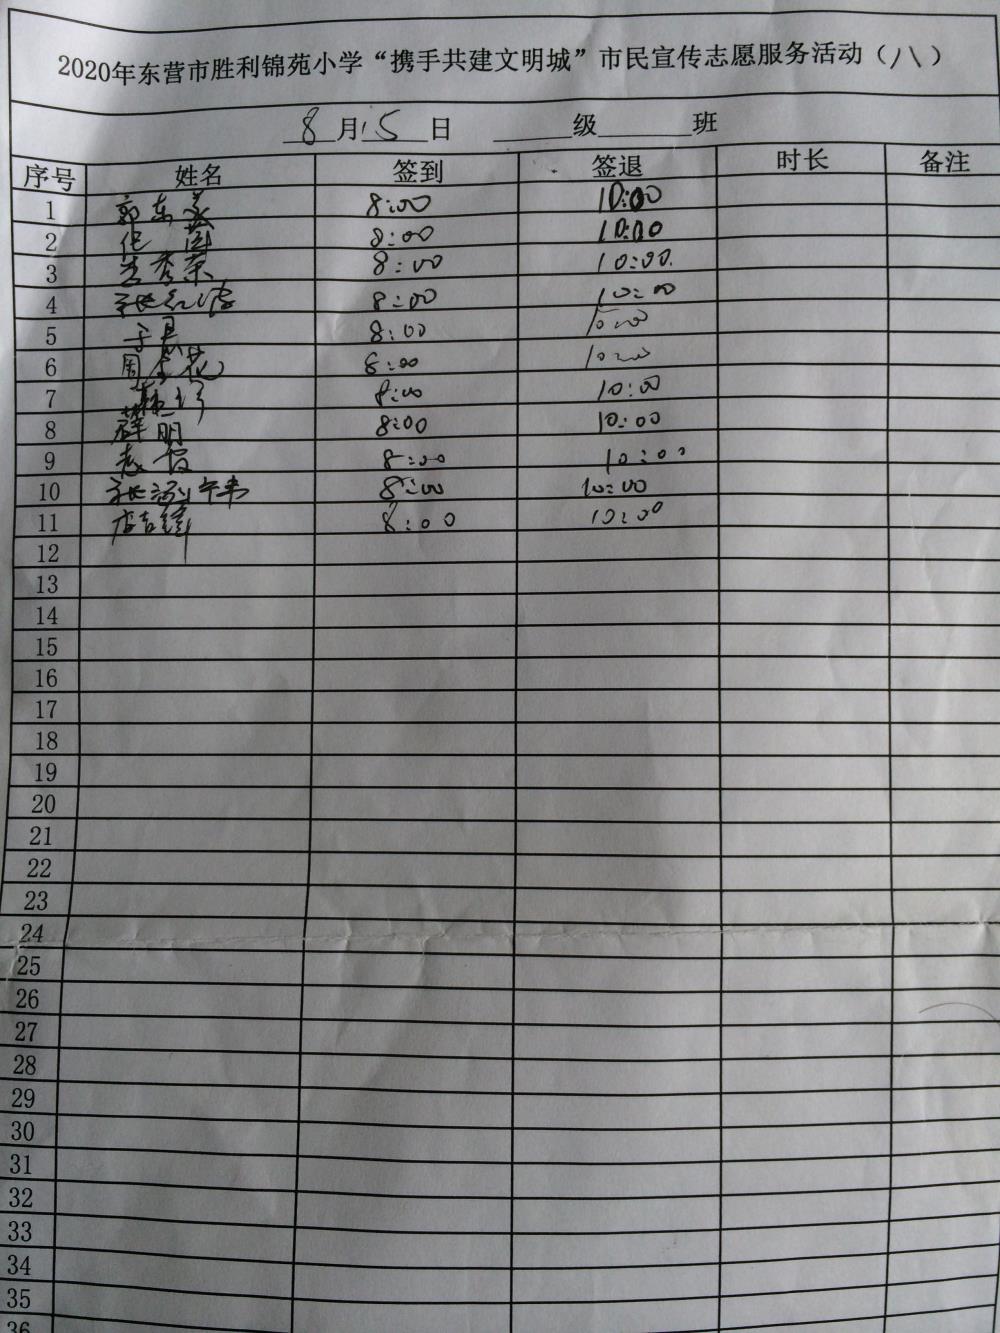 2020年东营市胜利锦苑小学“携手共建文明城”市民宣传志愿服务活动（八）
8月15日 级 班
序号 姓名 签到 签退 时长 备注
1 郭东 8:00 10:00
2 8:00 10:00
3 李秀荣 8:00 10:00
4 张红波 8:00 10:00
5 于 8:00 10:00
6 周金花 8:00 10:00
7 8:00 10:00
8 薛明 8:00 10:00
9 8:00 10:00
10 张 8:00 10:00
11 8:00 10:00
12
13
14
15
16
17
18
19
20
21
22
23
24
25
26
27
28
29
30
31
32
33
34
35
36